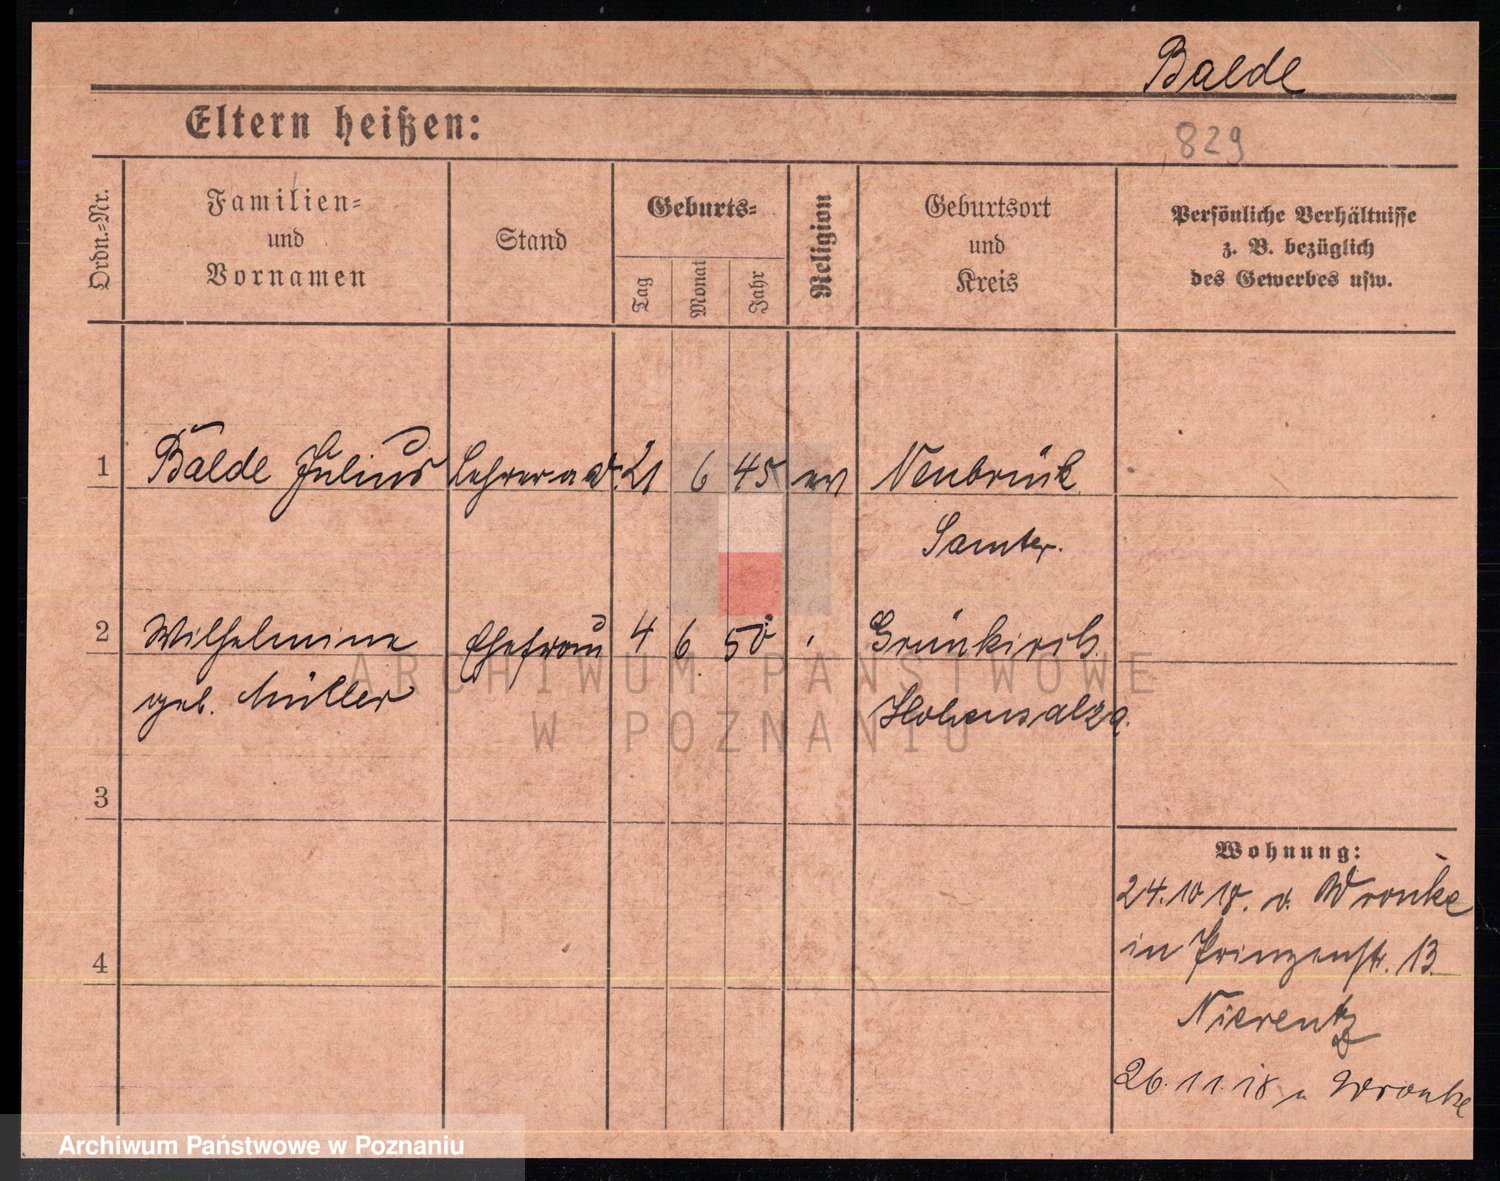 Balde
Eltern heißen:
829
Ordn.-Nr.
Familien- und Vornamen
Stand
Geburts-
Tag
Monat
Jahr
Religion
Geburtsort und Kreis
Persönliche Verhältnisse
z. B. bezüglich
des Gewerbes usw.
1 Balde Julius Lehrer a. D. 21 6 45 ev Neubrück
Samter.
2 Wilhelmine Ehefrau 4 6 50 Grünkirch
geb. Müller Hohensalza.
3
4
Wohnung:
24.10.18. v. Wronke
in Prinzenstr. 13.
Nierentz
26.11.18 n Wronke
ARCHIWUM PAŃSTWOWE
W POZNANIU
Archiwum Państwowe w Poznaniu